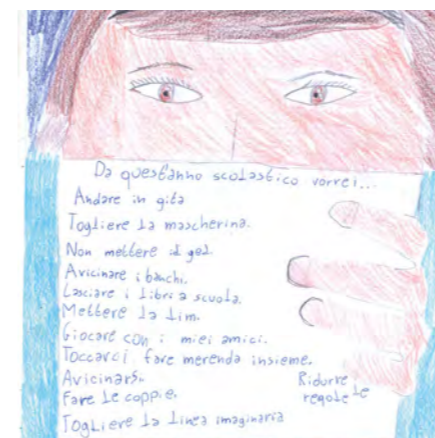 Da quest'anno scolastico vorrei...
Andare in gita
Togliere la mascherina.
Non mettere il gel
Avicinare i banchi.
Lasciare i libri a scuola.
Mettere la lim.
Giocare con i miei amici.
Toccarci fare merenda insieme.
Avicinarsi
Fare le coppie.
Ridurre le
regole
Togliere la linea imaginaria